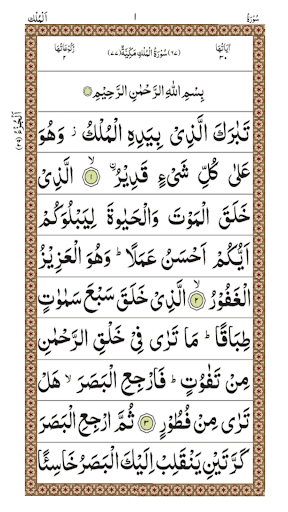 سُوۡرَةُ ١ اَلۡمُلۡك
اٰیَاتُهَا ٣٠ (٦٧) سُوۡرَةُ الۡمُلۡكِ مَكِّیَّةٌ (٧٧) رُكُوۡعَاتُهَا ٢
بِسۡمِ اللّٰهِ الرَّحۡمٰنِ الرَّحِیۡمِ
تَبٰرَكَ الَّذِیۡ بِیَدِهِ الۡمُلۡكُ ز وَهُوَ
عَلٰی كُلِّ شَیۡءٍ قَدِیۡرُ ۙ ١ الَّذِیۡ
خَلَقَ الۡمَوۡتَ وَالۡحَیٰوةَ لِیَبۡلُوَكُمۡ
اَیُّكُمۡ اَحۡسَنُ عَمَلًا ؕ وَهُوَ الۡعَزِیۡزُ
الۡغَفُوۡرُ ۙ ٢ الَّذِیۡ خَلَقَ سَبۡعَ سَمٰوٰتٍ
طِبَاقًا ؕ مَا تَرٰی فِیۡ خَلۡقِ الرَّحۡمٰنِ
مِنۡ تَفٰوُتٍ ؕ فَارۡجِعِ الۡبَصَرَ ۙ هَلۡ
تَرٰی مِنۡ فُطُوۡرٍ ٣ ثُمَّ ارۡجِعِ الۡبَصَرَ
كَرَّتَیۡنِ یَنۡقَلِبۡ اِلَیۡكَ الۡبَصَرُ خَاسِئًا